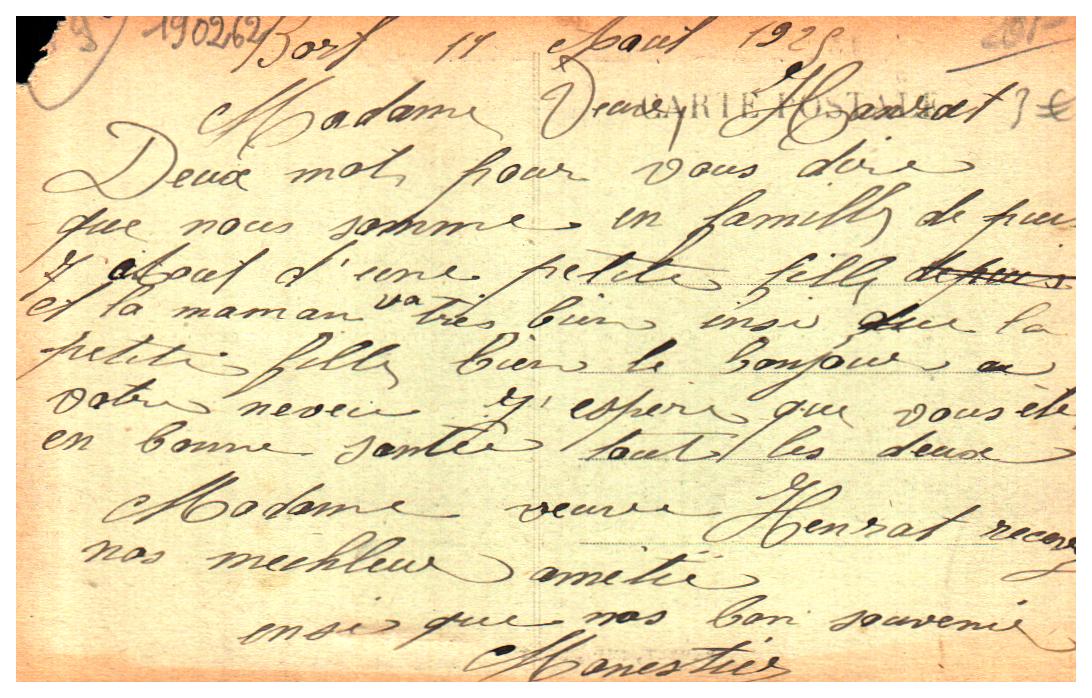 190262
Bort 11 Aout 192
Madame Veuve Hanrat 3 €
CARTE POSTALE
Deux mots pour vous dire
que nous somme en famille de puis
7 Aout d'une petite fille depuis
et la maman va très bien insi que la
petite fille bien le bonjour a
votre neveu J'espere que vous ête
en bonne santée tout les deux
Madame veuve Henrat recevez
nos mechleur ametië
ensi que nos bon souvenir
Manestier